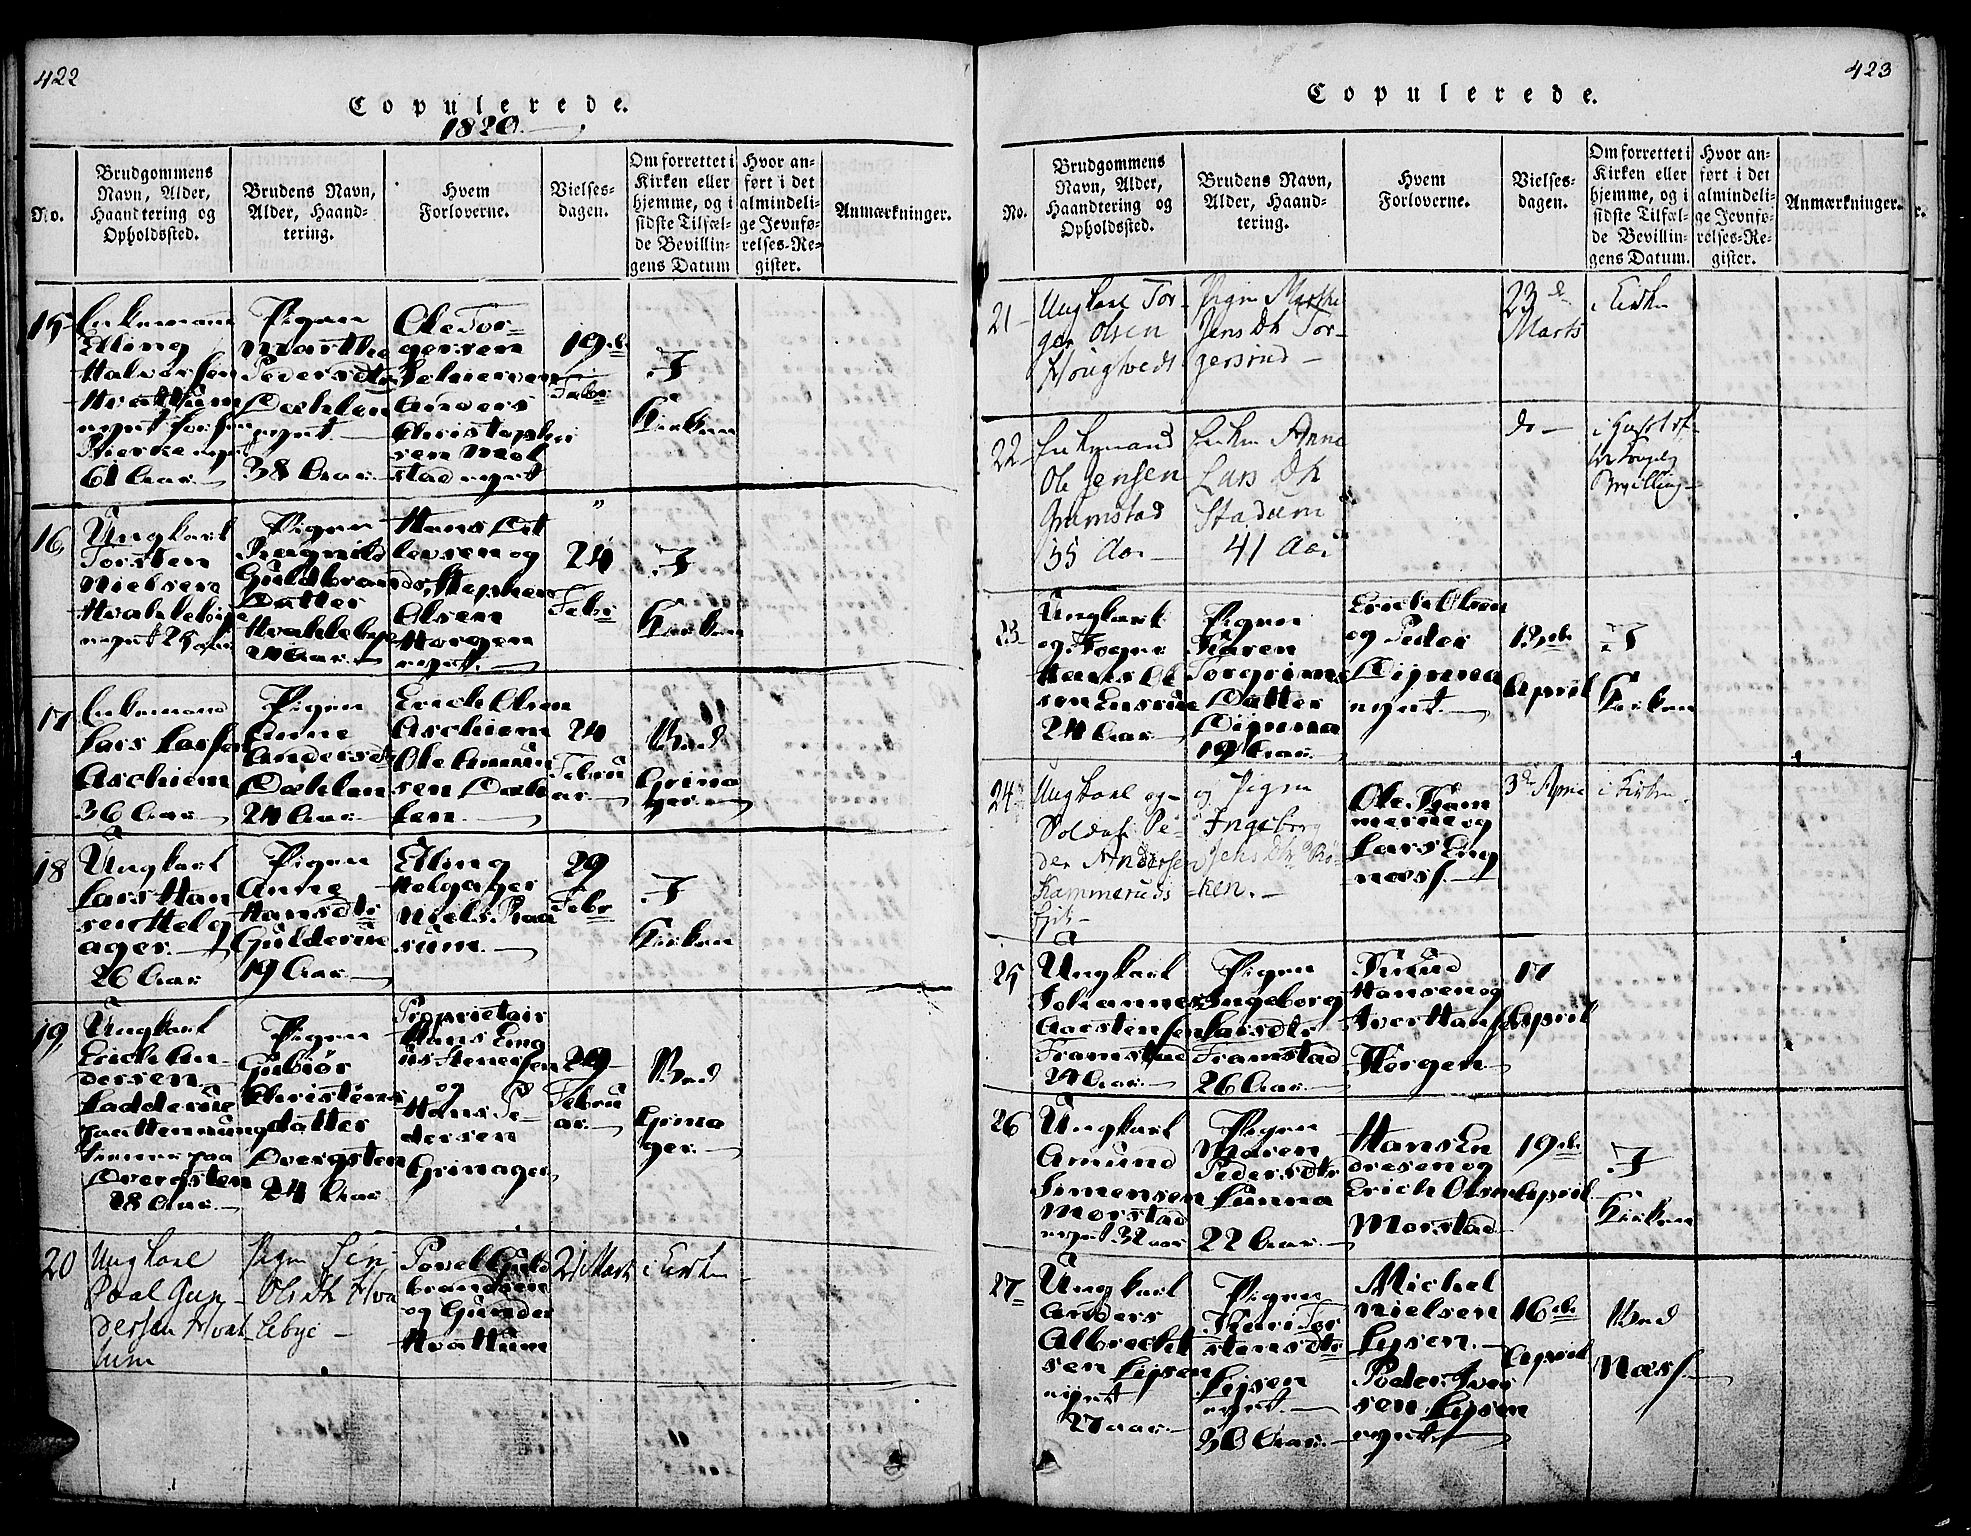 422
Copulerede.
1820.
No.
Brudgommens
Navn, Alder,
Haandtering og
Opholdssted.
Brudens Navn,
Alder, Haand-
tering.
Hvem
Forloverne.
Vielses-
dagen.
Om forrettet i
Kirken eller
hjemme, og i
sidste Tilfæl-
de Bevillin-
gens Datum
Hvor an-
ført i det
almindeli-
ge Jevnfø-
relses-Re-
gister.
Anmærkninger.
15
Enkemann
Elling
Halvorsen
Hvattum
61 Aar
Pigen
Marthe
Pedersdtr
Dæhlen
38 Aar
Ole Tor-
gersen
Anders
Christophe
sen Mol
stad
19de
Febr
I
Kirken
16
Ungkarl
Torsten
Nielsen
25 aar
Pigen
Guldbrands
Datter
24 Aar
Hans Det
levsen og
Stephen
Olsen
Horgen
24
Febr
I
Kirken
17
Enkemand
Lars Larsen
Aschiem
36 Aar
Pigen
Anne
Andersdtr
Dæhlen
24 Aar
Erich Olsen
Aschiem
Ole Amun
sen Dæh
len
24
Febru
ar
Ved
Grina
ger
18
Ungkarl
Lars Han
sen Helg
ager
26 Aar
Pigen
Anne
Hansdtr
19 Aar
Elling
Helgager
Niels Raa
sum
29
Febr
I
Kirken
19
Ungkarl
Erich An-
dersen
Dvergsten
28 Aar
Pigen
Gubiør
Christens
datter
Dvergsten
24 Aar
Proprietair
Hans Eng
Stenersen
og
Hans Pe-
dersen
Grinager
29
Febru
ar
Ved
Grina
ger
20
Ungkarl
Poal Gun-
dersen Hvat
tum
Pigen
Olsdtr Hva
lebye
Povel Guld
brandsen
og Gunder
Hvattum
21 Marts
i Kirken
423
Copulerede.
No.
Brudgommens
Navn, Alder,
Haandtering og
Opholdssted.
Brudens Navn,
Alder, Haand-
tering.
Hvem
Forloverne.
Vielses-
dagen.
Om forrettet i
Kirken eller
hjemme, og i
sidste Tilfæl-
de Bevillin-
gens Datum.
Hvor an-
ført i det
almindeli-
ge Jevnfø-
relses-Re-
gister.
Anmærkninger.
21
Ungkarl Tor-
ger Olsen
Pigen Marthe
Jens Dtr Tor-
gersrud
23de
Marts
i Kirken
22
Enkemand
Ole Jensen
Grimstad
55 Aar
Enken Anne
Lars Dtr
Stadum
41 Aar
do
23
Ungkarl
Hans Ol
sen
24 Aar
Pigen
Karen
Torgrims
Datter
Dynna
19 Aar
Erich Olsen
og Peder
Dynna
13de
April
I
Kirken
24
Ungkarl og
Soldat Pe-
der Andersen
Kammeruds
og Pigen
Ingeborg
Jens Dtr Rø-
ken.
Ole Kam
merue og
Lars Eng
næss
3de April
i Kirken
25
Ungkarl
Johannes
Framstad
24 Aar
Pigen
Ingeborg
Larsdtr
Framstad
26 Aar
Knud
Hansen og
Iver Hansen
Horgen
17
April
26
Ungkarl
Amund
Simensen
Morstad
32 aar
Pigen
Maren
Pedersdtr
Lunna
22 Aar
Hans En
dresen og
Erich Olsen
Morstad
19de
April
I
Kirken
27
Ungkarl
Anders
Albrecht
sen Lysen
27 aar
Pigen
Kari Tor
stensdtr
Lysen
30 Aar
Michel
Nielsen
Lysen
Peder Iver
sen Lysen
16de
April
Ved
Næss